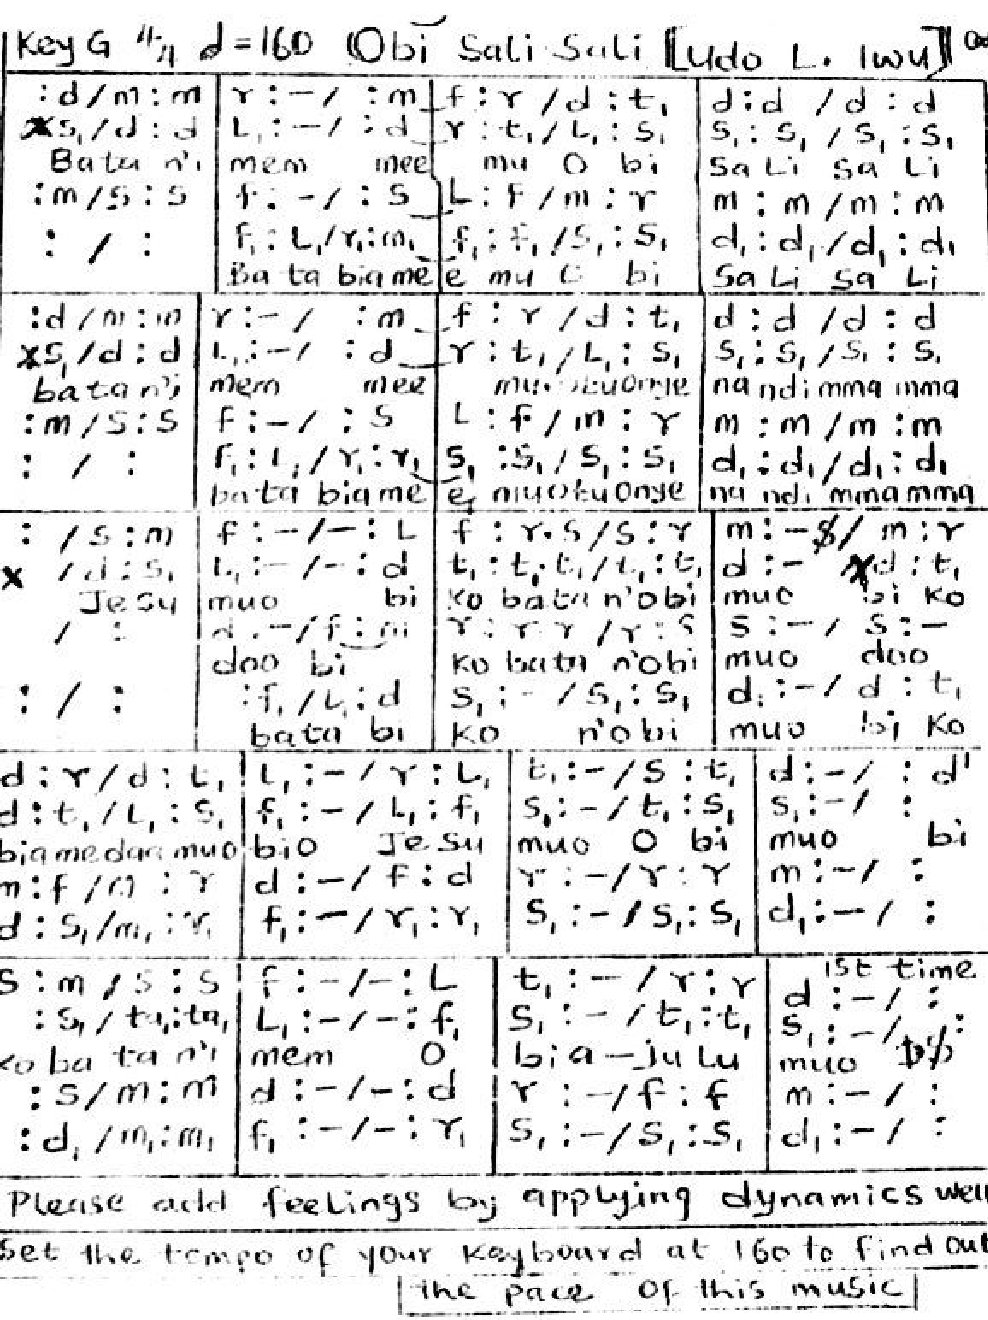 Key G 4/4 d=160 Obi Sali Sali [Udo L. Iwu]
:d/m:m | r:-/ :m | f:r/d:t₁ | d:d /d:d
s₁/d:d | L₁:-/ :d | r:t₁/L₁:s₁ | s₁:s₁/s₁:s₁
Bata n'i | mem mee | mu O bi | Sa Li Sa Li
:m/s:s | f:-/ :s | L:f/m:r | m:m/m:m
: / : | f₁:L₁/r₁:m₁ | f₁:f₁/s₁:s₁ | d₁:d₁/d₁:d₁
Ba ta biame | e mu O bi | Sa Li Sa Li
:d/m:m | r:-/ :m | f:r/d:t₁ | d:d/d:d
s₁/d:d | L₁:-/ :d | r:t₁/L₁:s₁ | s₁:s₁/s₁:s₁
bata n'i | mem mee | na ndi mma mma
:m/s:s | f:-/ :s | L:f/m:r | m:m/m:m
: / : | f₁:L₁/r₁:r₁ | s₁:s₁/s₁:s₁ | d₁:d₁/d₁:d₁
bata biame | e muokuonye | na ndi mma mma
: /s:m | f:-/-:L | f:r.s/s:r | m:-/ m:r
/d:s₁ | L₁:-/-:d | t₁:t₁.t₁/t₁:t₁ | d:- d:t₁
Jesu | muo bi | ko bata n'obi | muo bi ko
/ : | d:-/f:m | r:r r/r:s | s:-/ s:-
doo bi | ko bata n'obi | muo doo
: / : | :f₁/L₁:d | s₁:-/s₁:s₁ | d:-/d:t₁
bata bi | ko n'obi | muo bi ko
d:r/d:t₁ | L₁:-/r:L₁ | t₁:-/s:t₁ | d:-/ :d'
d:t₁/L₁:s₁ | f₁:-/L₁:f₁ | s₁:-/t₁:s₁ | s₁:-/ :
biame muo | bio Jesu | muo O bi | muo bi
m:f/m:r | d:-/f:d | r:-/r:r | m:-/ :
d:s₁/m₁:r₁ | f₁:-/r₁:r₁ | s₁:-/s₁:s₁ | d₁:-/ :
1st time
s:m/s:s | f:-/-:L | t₁:-/r:r | d:-/ :
:s₁/ta₁:ta₁ | L₁:-/-:f₁ | s₁:-/t₁:t₁ | s₁:-/ :
ko ba ta n'i | mem O | bia-ju Lu | muo
:s/m:m | d:-/-:d | r:-/f:f | m:-/ :
:d₁/m₁:m₁ | f₁:-/-:r₁ | s₁:-/s₁:s₁ | d₁:-/ :
Please add feelings by applying dynamics well
Set the tempo of your Keyboard at 160 to find out
the pace of this music